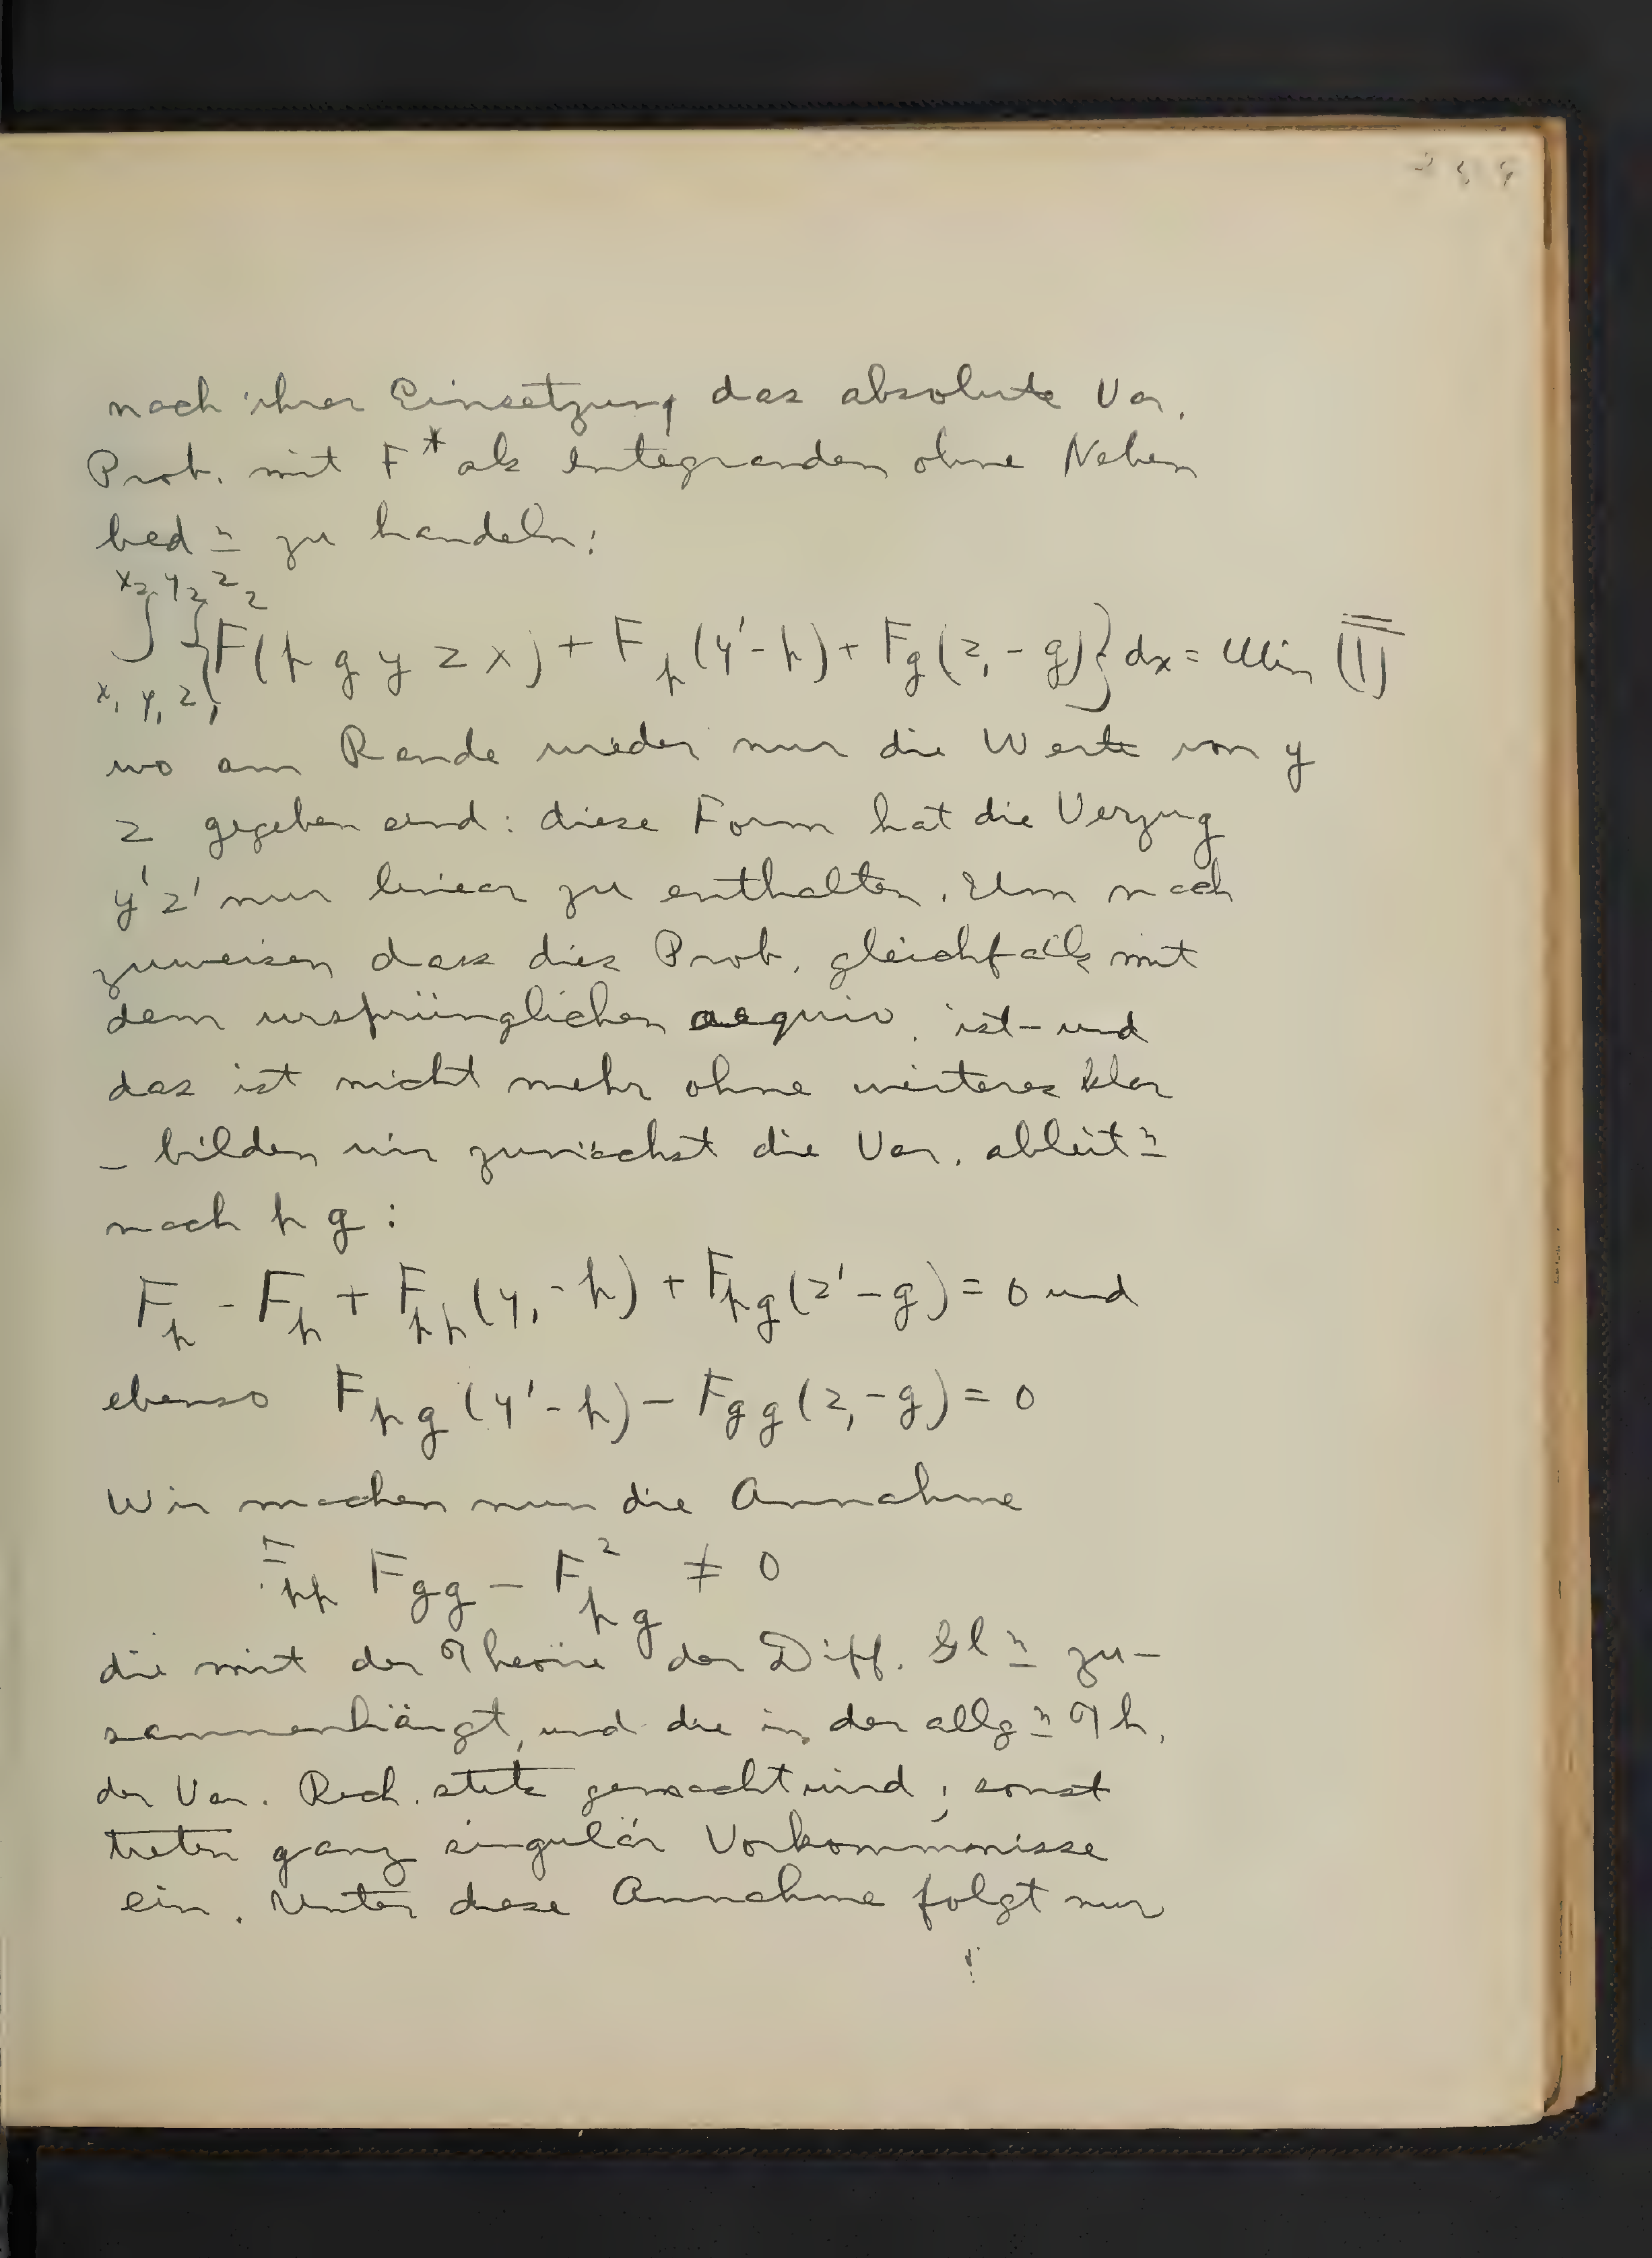 nach ihrer Einsetzung das absolute Var.
Prob. mit F* als Integranden ohne Neben
bed<u>n</u> zu handeln:
∫_{x₁ y₁ z₁}^{x₂ y₂ z₂} {F(p q y z x) + F_p (y' - p) + F_q (z, - q)} dx = Min (II)
wo am Rande wieder nur die Werte von y
z gegeben sind: diese Form hat die Verzug
y' z' nur linear zu enthalten. Um nach
zuweisen dass dies Prob. gleichfalls mit
dem ursprünglichen aequiv. ist - und
das ist nicht mehr ohne weiteres klar
– bilden wir zunächst die Var. ableit<u>n</u>
nach p q :
F_p - F_p + F_pp (y, - p) + F_pq (z' - q) = 0 und
ebenso F_pq (y' - p) - F_qq (z, - q) = 0
Wir machen nun die Annahme
F_pp F_qq - F²_pq ≠ 0
die mit der Theorie der Diff. Gl<u>n</u> zu-
sammenhängt, und die in der allg<u>n</u> Th.
der Var. Rech. stets gemacht wird ; sonst
treten ganz singulär Vorkommnisse
ein. Unter diese Annahme folgt nur